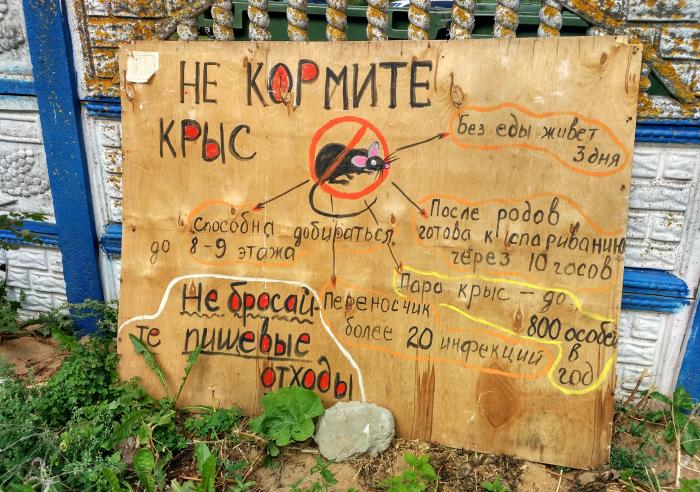 НЕ КОРМИТЕ
КРЫС
Без еды живет
3 дня
Способна добираться
до 8-9 этажа
После родов
готова к спариванию
через 10 часов
Пара крыс – до
800 особей
в
год
Переносчик
более 20 инфекций
Не бросай-
те пищевые
отходы